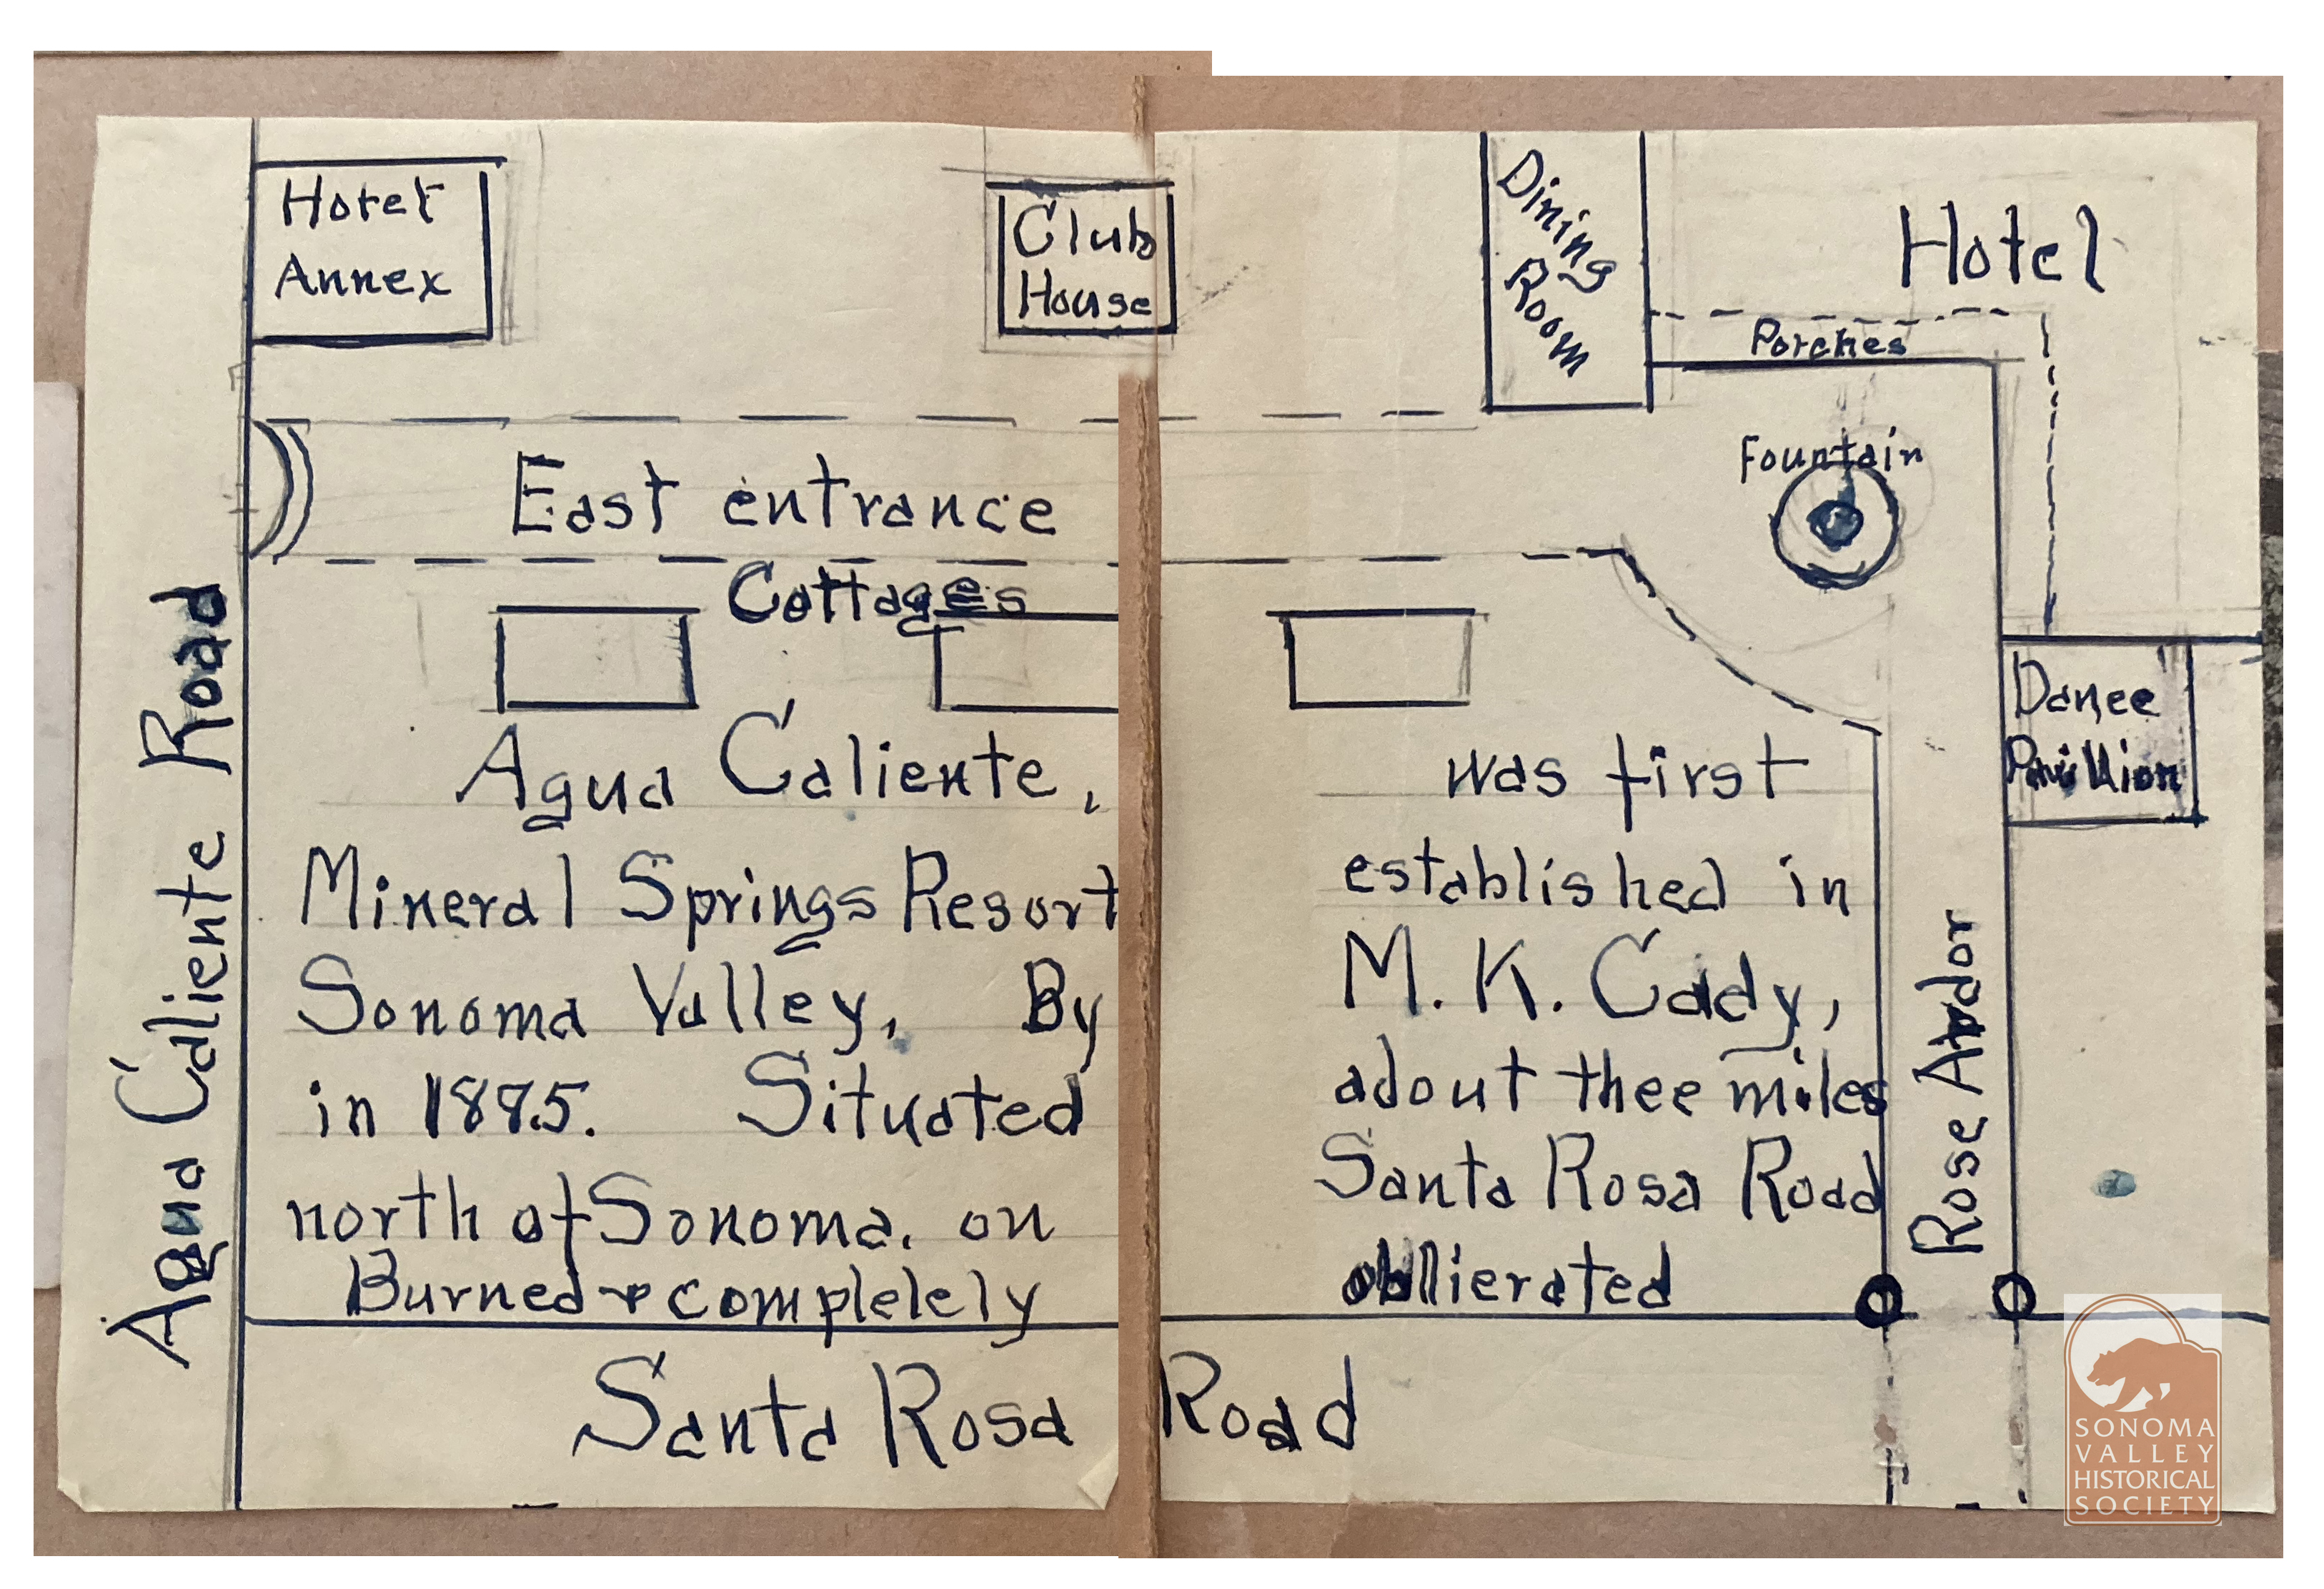 Hotel
Annex
Club
House
Dining
Room
Hotel
Porches
Fountain
East entrance
Cottages
Dance
Pavillion
Agua Caliente Road
Agua Caliente, was first
Mineral Springs Resort established in
Sonoma Valley, By M. K. Cady,
in 1885. Situated adout thee miles
north of Sonoma. on Santa Rosa Road
Burned & complelely obllierated
Rose Ardor
Santa Rosa Road
SONOMA
VALLEY
HISTORICAL
SOCIETY